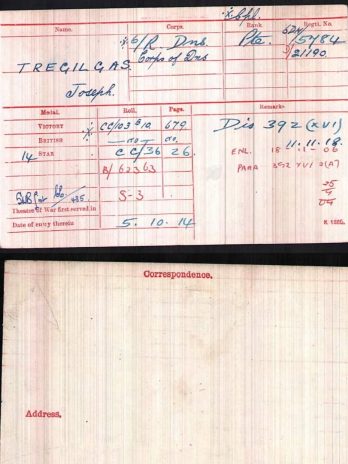 Name. Corps. Rank. Regtl. No.
6/R. Dns. Pte. 6DN/5484
Corps of Dns 21190
TREGILGAS.
Joseph.
Medal. Roll. Page. Remarks.
VICTORY CC/103 B 10 679 Dis 392 (XVI)
BRITISH do. do. 11.11.18.
14 STAR CC/36 26. ENL. 18 11 06
B/62363 PARA 392 XVI (A)
S-3
Theatre of War first served in
Date of entry therein 5. 10. 14
Correspondence.
Address.